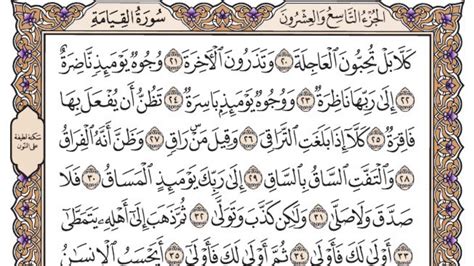 الجزء التاسع والعشرون
سورة القيامة
كَلَّا بَلْ تُحِبُّونَ الْعَاجِلَةَ ٢٠ وَتَذَرُونَ الْآخِرَةَ ٢١ وُجُوهٌ يَوْمَئِذٍ نَّاضِرَةٌ
٢٢ إِلَىٰ رَبِّهَا نَاظِرَةٌ ٢٣ وَوُجُوهٌ يَوْمَئِذٍ بَاسِرَةٌ ٢٤ تَظُنُّ أَن يُفْعَلَ بِهَا
فَاقِرَةٌ ٢٥ كَلَّا إِذَا بَلَغَتِ التَّرَاقِيَ ٢٦ وَقِيلَ مَنْ رَاقٍ ٢٧ وَظَنَّ أَنَّهُ الْفِرَاقُ
٢٨ وَالْتَفَّتِ السَّاقُ بِالسَّاقِ ٢٩ إِلَىٰ رَبِّكَ يَوْمَئِذٍ الْمَسَاقُ ٣٠ فَلَا
صَدَّقَ وَلَا صَلَّىٰ ٣١ وَلَٰكِن كَذَّبَ وَتَوَلَّىٰ ٣٢ ثُمَّ ذَهَبَ إِلَىٰ أَهْلِهِ يَتَمَطَّىٰ
٣٣ أَوْلَىٰ لَكَ فَأَوْلَىٰ ٣٤ ثُمَّ أَوْلَىٰ لَكَ فَأَوْلَىٰ ٣٥ أَيَحْسَبُ الْإِنسَانُ
سكتة لطيفة
على النون